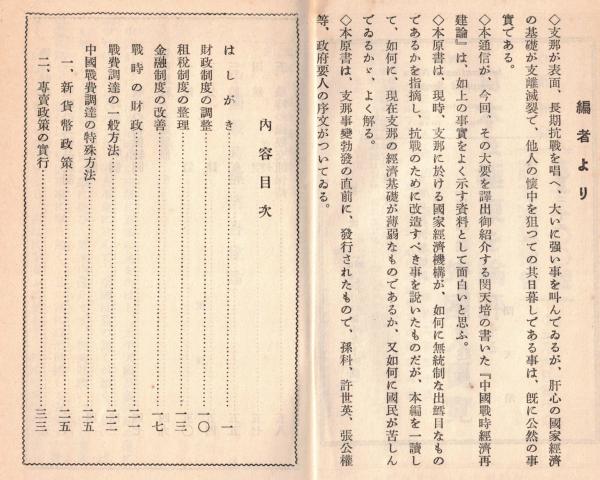 編者より
◇支那が表面、長期抗戰を唱へ、大いに强い事を叫んでゐるが、肝心の國家經濟
の基礎が支離滅裂で、他人の懷中を狙つての其日暮しである事は、旣に公然の事
實である。
◇本通信が、今回、その大要を譯出御紹介する閔天培の書いた『中國戰時經濟再
建論』は、如上の事實をよく示す資料として面白いと思ふ。
◇本原書は、現時、支那に於ける國家經濟機構が、如何に無統制な出鱈目なもの
であるかを指摘し、抗戰のために改造すべき事を說いたものだが、本編を一讀し
て、如何に、現在支那の經濟基礎が薄弱なものであるか、又如何に國民が苦しん
でゐるかゞ、よく解る。
◇本原書は、支那事變勃發の直前に、發行されたもので、孫科、許世英、張公權
等、政府要人の序文がついてゐる。
內容目次
はしがき……………………一
財政制度の調整……………………一〇
租稅制度の整理……………………一三
金融制度の改善……………………一七
戰時の財政……………………二一
戰費調達の一般方法……………………二二
中國戰費調達の特殊方法……………………二五
一、新貨幣政策……………………二五
二、專賣政策の實行……………………三三